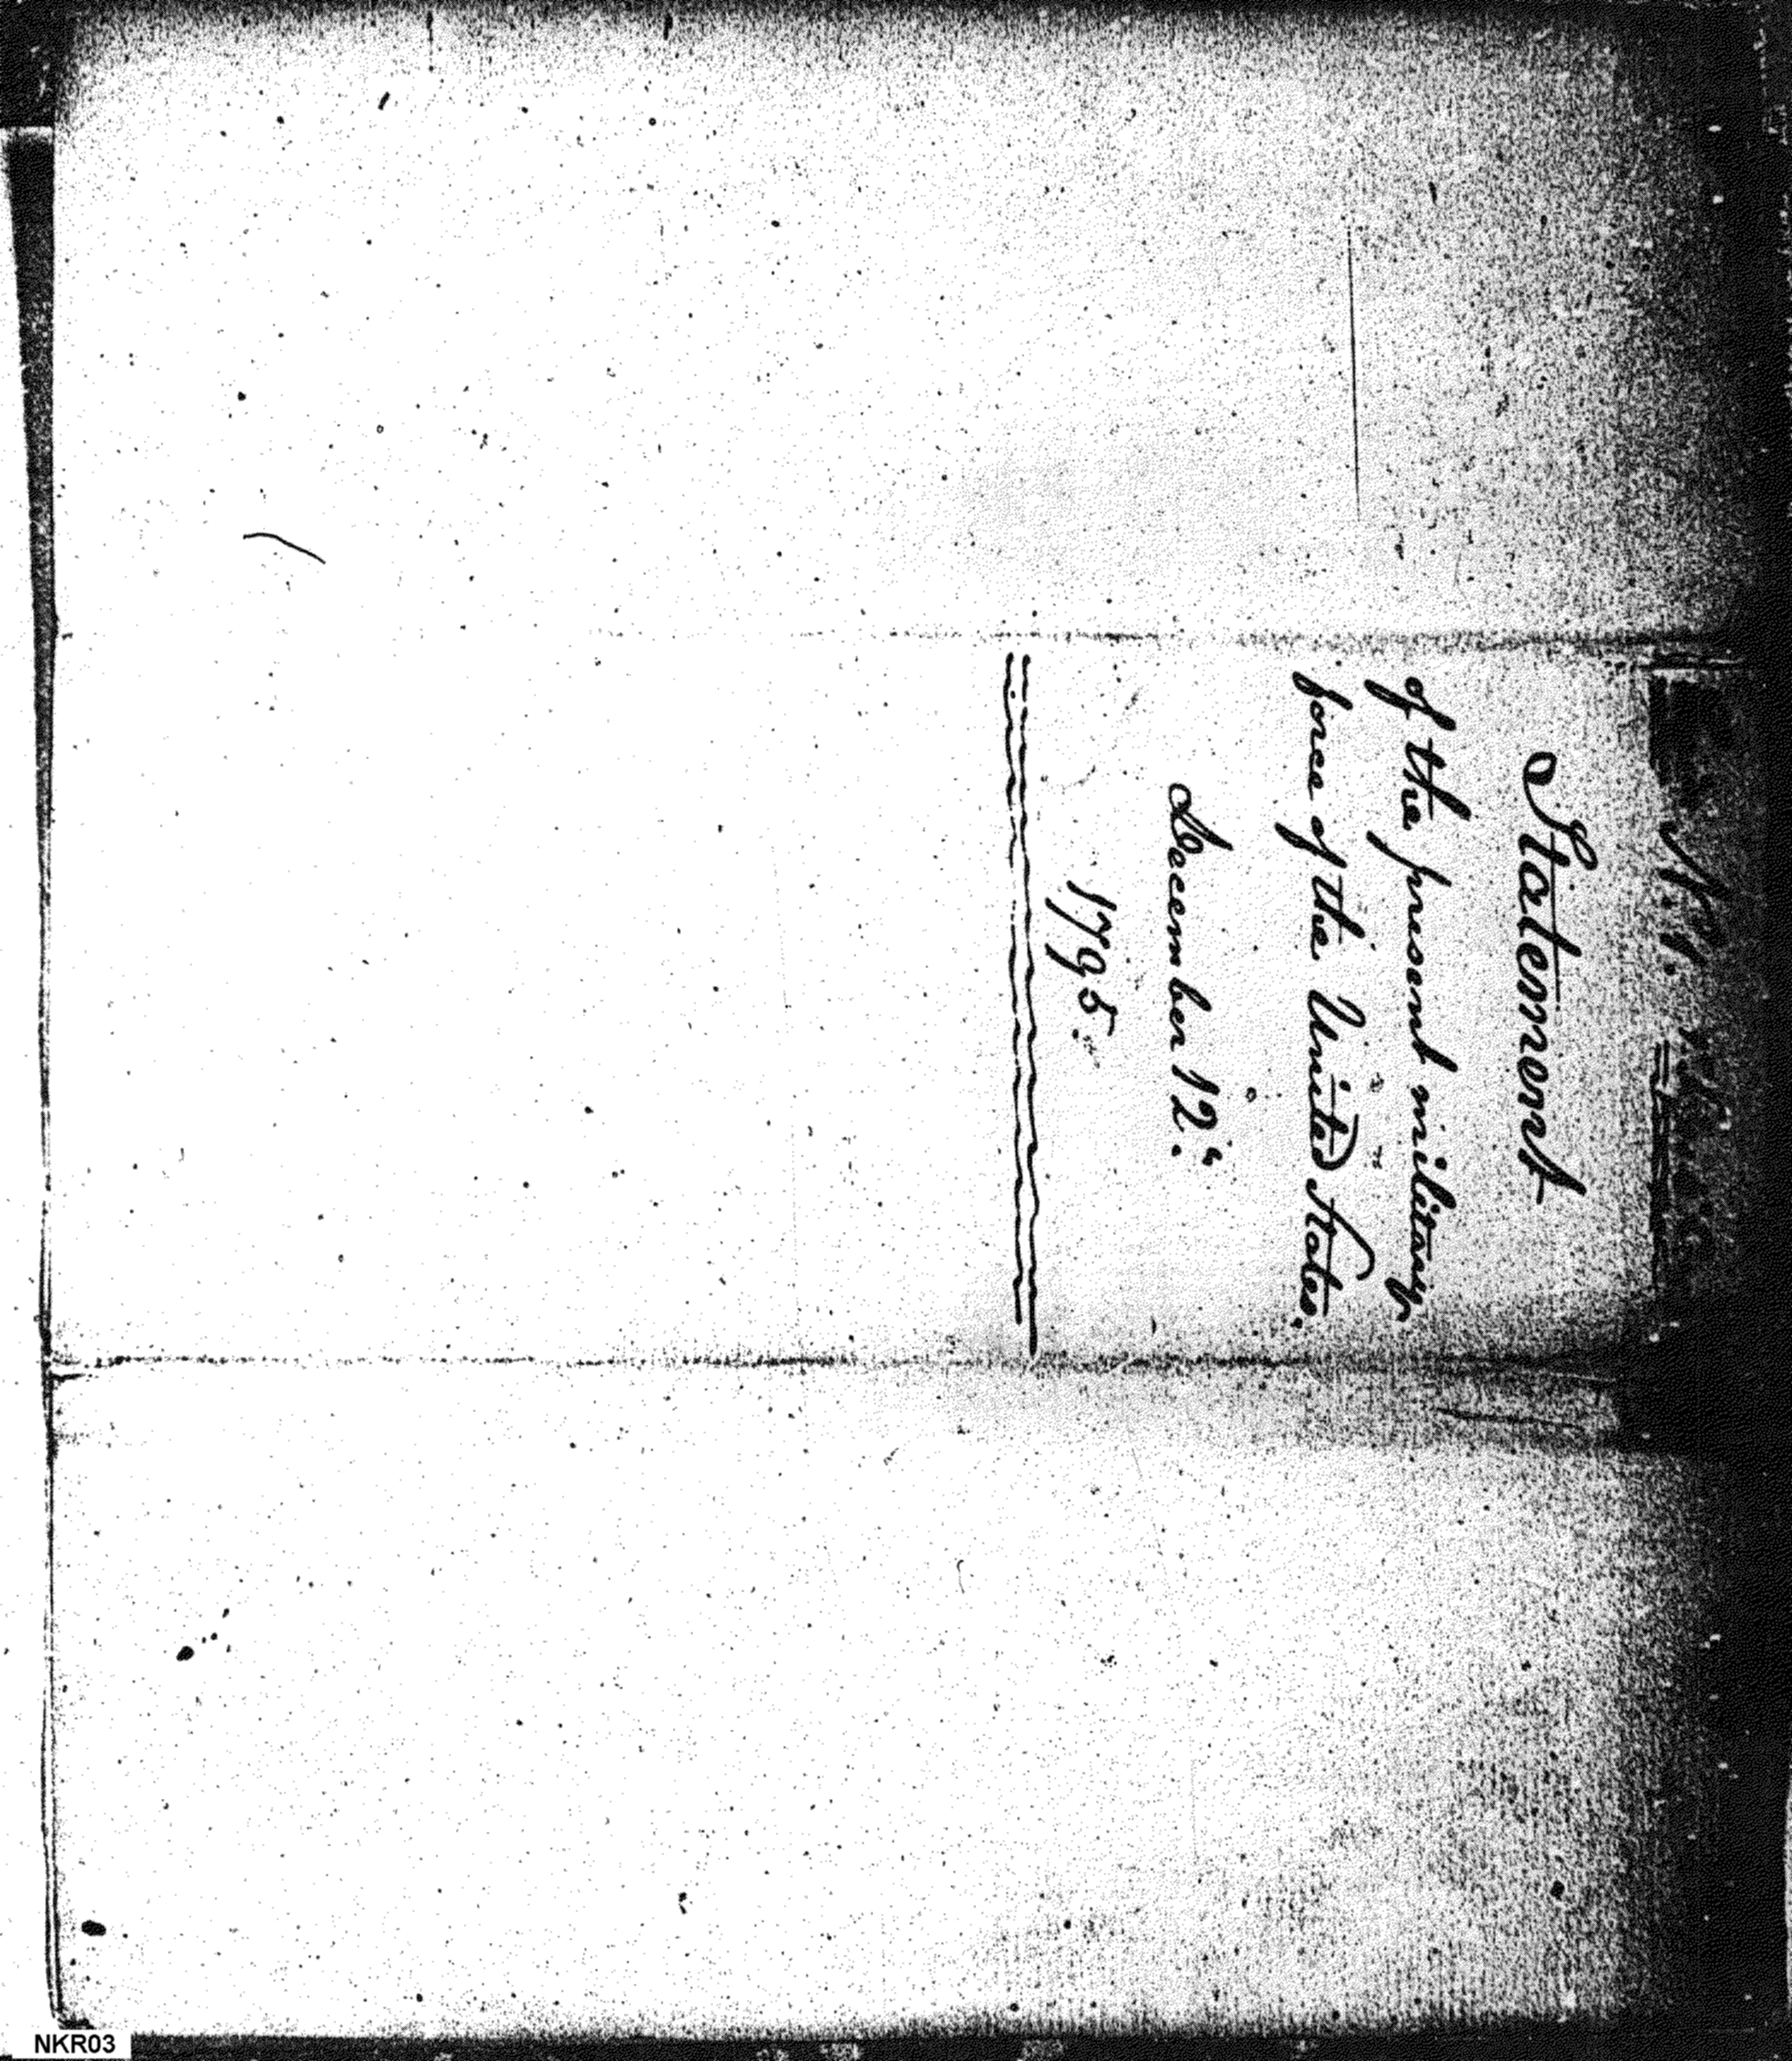 No. 1.
Statement
of the present military
force of the United States.
December 12th.
1795.
NKR03